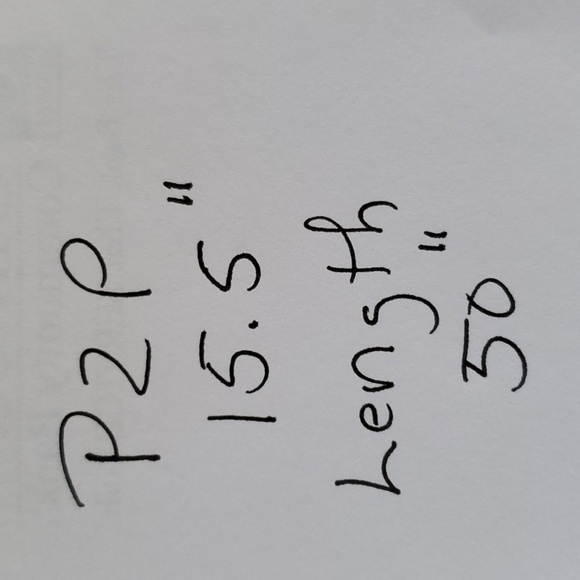 P2P
15.5"
Length
50"